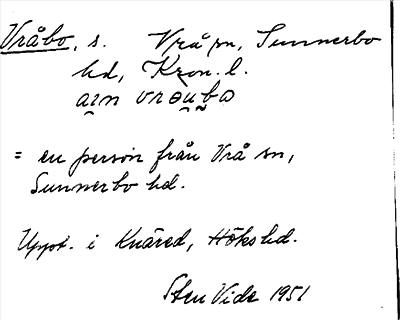 Vråbo, s. Vrå sn, Sunnerbo
hd, Kron. l.
= en person från Vrå sn,
Sunnerbo hd.
Uppt. i Knäred, Höks hd.
Sten Vide 1951